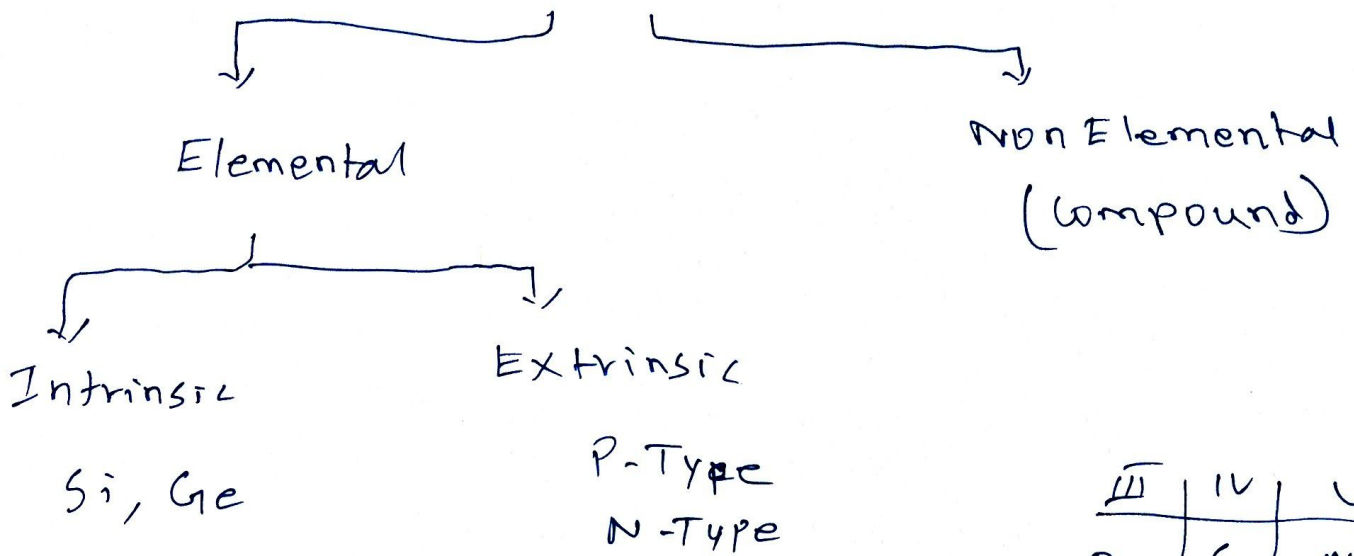 Elemental
Non Elemental
(Compound)
Intrinsic
Extrinsic
Si, Ge
P-Type
N-Type
III | IV |